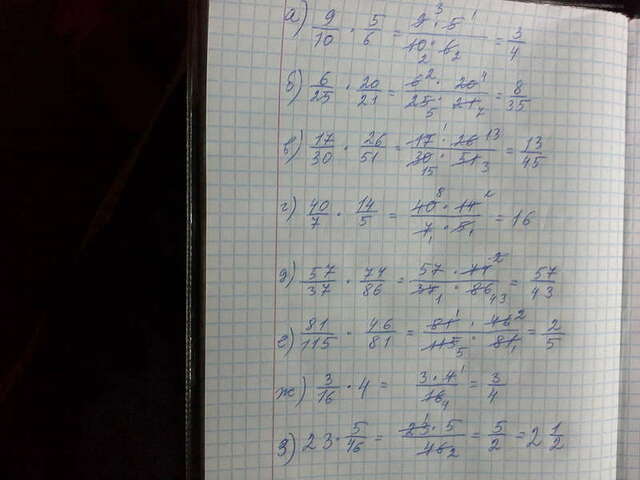 а) 9/10 · 5/6 = 9³ · 5¹ / 10₂ · 6₂ = 3/4
б) 6/25 · 20/21 = 6² · 20⁴ / 25₅ · 21₇ = 8/35
в) 17/30 · 26/51 = 17¹ · 26¹³ / 30₁₅ · 51₃ = 13/45
г) 40/7 · 14/5 = 40⁸ · 14² / 7₁ · 5₁ = 16
д) 57/37 · 74/86 = 57 · 74² / 37₁ · 86₄₃ = 57/43
е) 81/115 · 46/81 = 81¹ · 46² / 115₅ · 81₁ = 2/5
ж) 3/16 · 4 = 3 · 4¹ / 16₄ = 3/4
з) 23 · 5/46 = 23¹ · 5 / 46₂ = 5/2 = 2 1/2